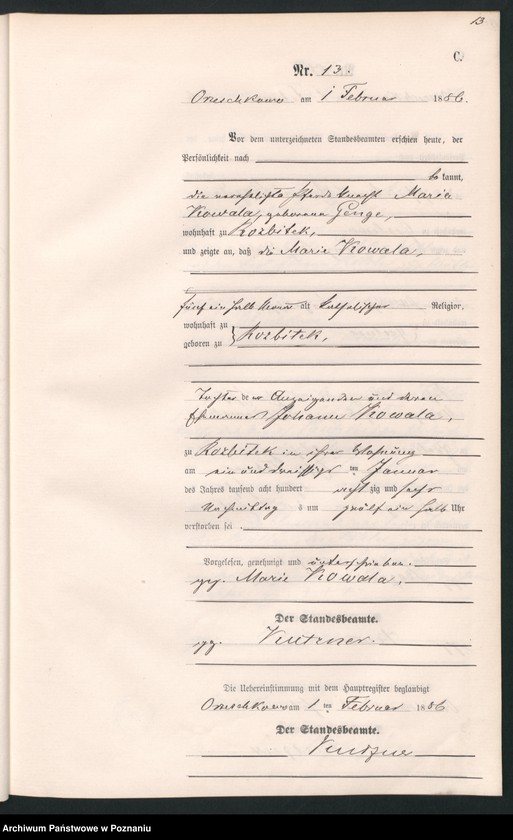 13
C.
Nr. 13.
am 1 Februar 1886.
Vor dem unterzeichneten Standesbeamten erschien heute, der
Persönlichkeit nach
be kannt,
die verehelichte Pferdeknecht Maria
Kowala, geborene Genge,
wohnhaft zu Rozbitek,
und zeigte an, daß die Marie Kowala,
fünf ein halb alt katholischer Religion,
wohnhaft zu
geboren zu Rozbitek,
Tochter der Anzeigenden und deren
Ehemannes Johann Kowala,
zu Rozbitek in ihrer Wohnung
am ein und dreißigsten Januar
des Jahres tausend acht hundert acht zig und sechs
Nachmittag s um zwölf ein halb Uhr
verstorben sei.
Vorgelesen, genehmigt und unterschrieben.
gez. Marie Kowala,
Der Standesbeamte.
gez.
Die Uebereinstimmung mit dem Hauptregister beglaubigt
am 1 ten Februar 1886
Der Standesbeamte.
Archiwum Państwowe w Poznaniu